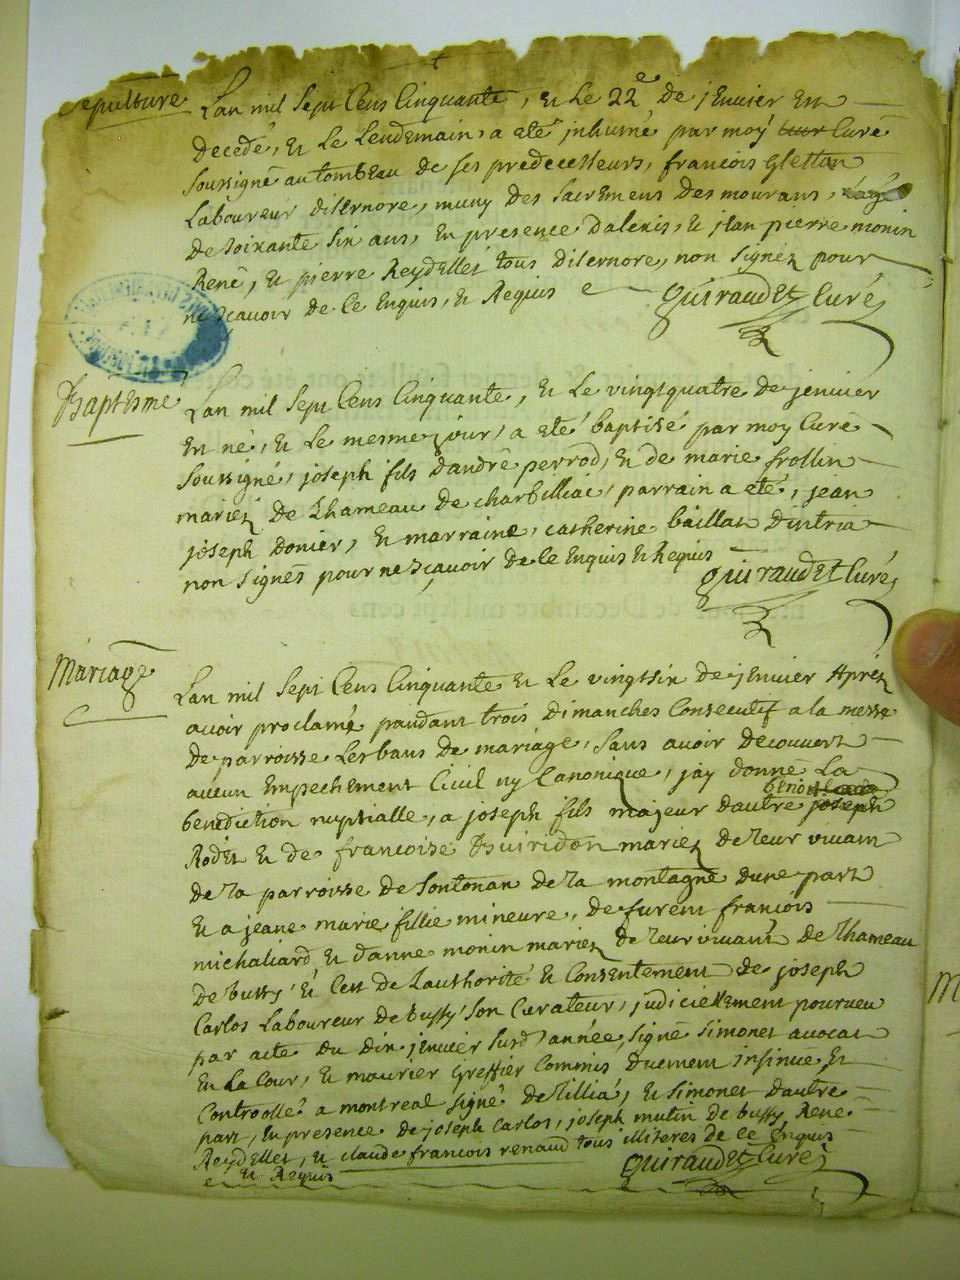 Sepulture
Lan mil sept Cens Cinquante, et le 22e de jenvier est
decedé, et le lendemain, a eté jnhumé par moÿ Curé
soussigné au tombeau de ses predecesseurs, francois Glettan
Laboureur disernore, muny des sacremens des mourans, agé
de soixante six ans, en presence dalexis, et jean pierre monin
René, et pierre Reydellet tous disernore, non signéz pour
ne scavoir de ce Enquis, et Requis
Guiraudet Curé
Baptesme
Lan mil sept Cens Cinquante, et le vingtquatre de jenvier
est né, et le mesme jour, a eté baptisé par moy Curé
soussigné, joseph fils dandré perrod, et de marie frollin
mariéz de Lhameau de charbilliac, parrain a eté, jean
joseph donier, et marraine, catherine baillat dintria
non signés pour ne sçavoir de ce Enquis et Requis
Guiraudet Curé
Mariage
Lan mil sept Cens Cinquante et le vingtsix de jenvier Apréz
avoir proclamé pandant trois dimanches Consecutif a la messe
de parroisse Les bans de mariage, sans avoir decouvert
aucun Empechement Civil ny Canonique, jay donné La
benoit
benediction nuptialle, a joseph fils majeur dautre joseph
Rodet et de francoise mariéz de leur vivant
de la parroisse de Sontonan de la montagne dune part
et a jeane marie fillie mineure, de furent francois
michaliard et danne monin mariéz de leur vivant de lhameau
de bussy, et Cest de Lauthorité et Consentement de joseph
Carlos Laboureur de bussy son Curateur, judiciellement pourveu
par acte du dix jenvier susd. année, signé simonet avocat
en la Cour, et maurier greffier Commis duement insinué et
Controollé a montreal signé delillia, et simonet dautre
part, En presence de joseph Carlos, joseph mutin de bussy René
Reydellet, et claude francois renaud tous illiteres de ce Enquis
et Requis
Guiraudet Curé